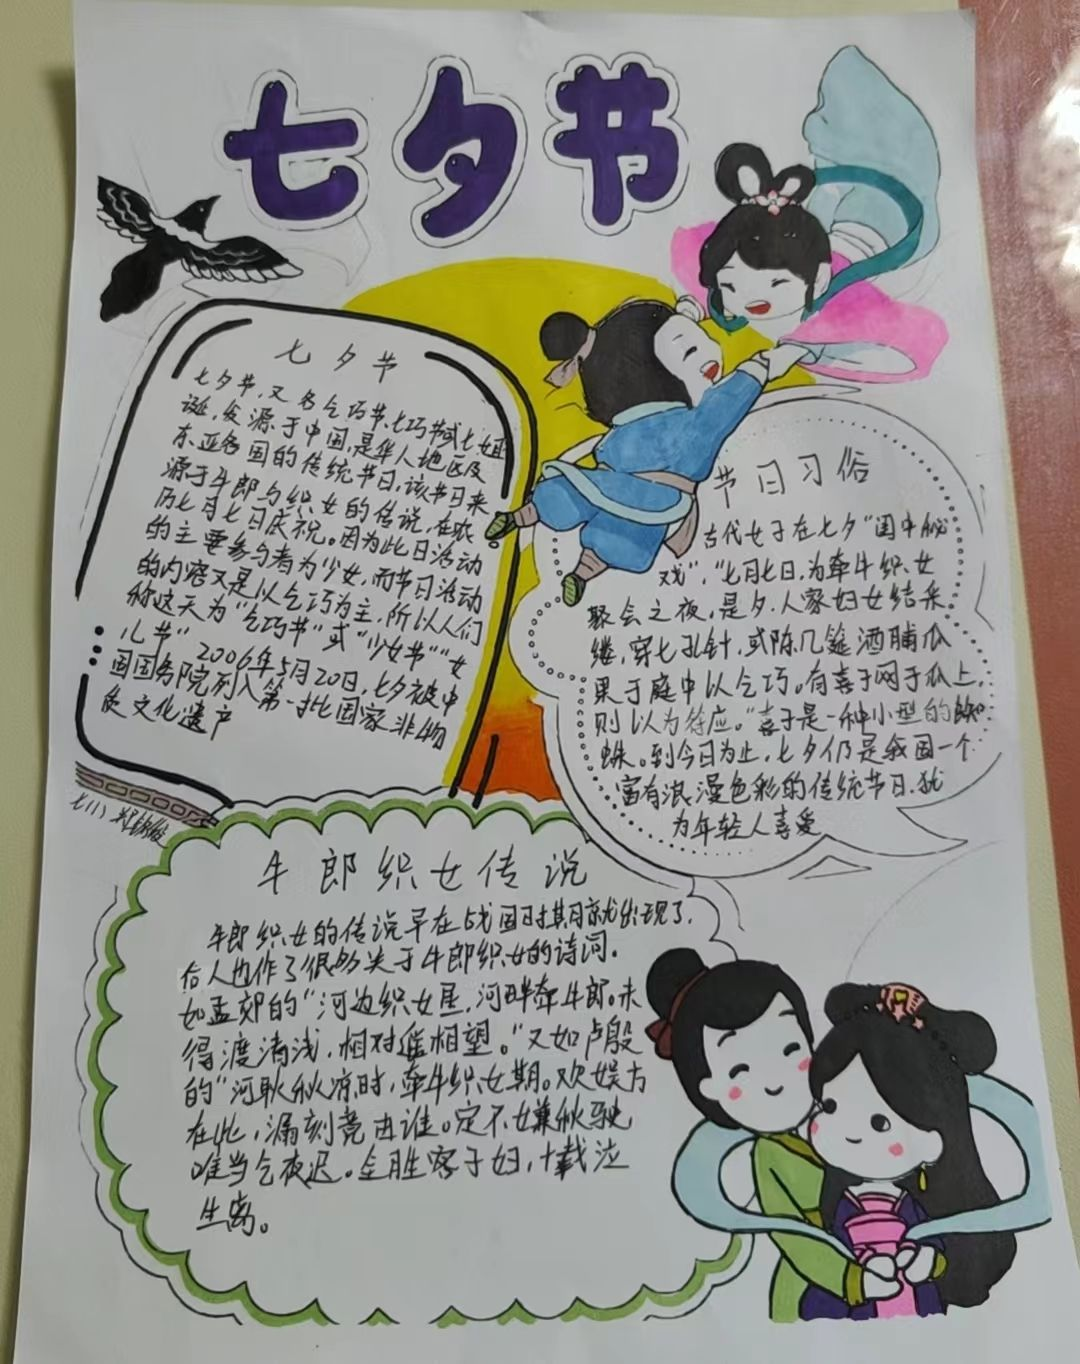 七夕节
七夕节
七夕节，又名乞巧节、七巧节或七姐
诞，发源于中国，是华人地区及
东亚各国的传统节日，该节日来
源于牛郎与织女的传说，在农
历七月七日庆祝。因为此日活动
的主要参与者为少女，而节日活动
的内容又是以乞巧为主，所以人们
称这天为“乞巧节”或“少女节”“女
儿节”2006年5月20日，七夕被中
国国务院列入第一批国家非物
质文化遗产
七(1)
节日习俗
古代女子在七夕“闺中秘
戏”，“七月七日，为牵牛织女
聚会之夜，是夕，人家妇女结采
缕，穿七孔针，或陈几筵酒脯瓜
果于庭中以乞巧。有喜子网于瓜上，
则以为符应。”喜子是一种小型的蜘
蛛。到今日为止，七夕仍是我国一个
富有浪漫色彩的传统节日，犹
为年轻人喜爱
牛郎织女传说
牛郎织女的传说早在战国时期就出现了，
后人也作了很多关于牛郎织女的诗词。
如孟郊的“河边织女星，河畔牵牛郎。未
得渡清浅，相对遥相望。”又如卢殷
的“河耿秋凉时，牵牛织女期。欢娱方
在此，漏刻竟由谁。定不嫌秋驶
唯当乞夜迟。全胜客子妇，十载泣
生离。